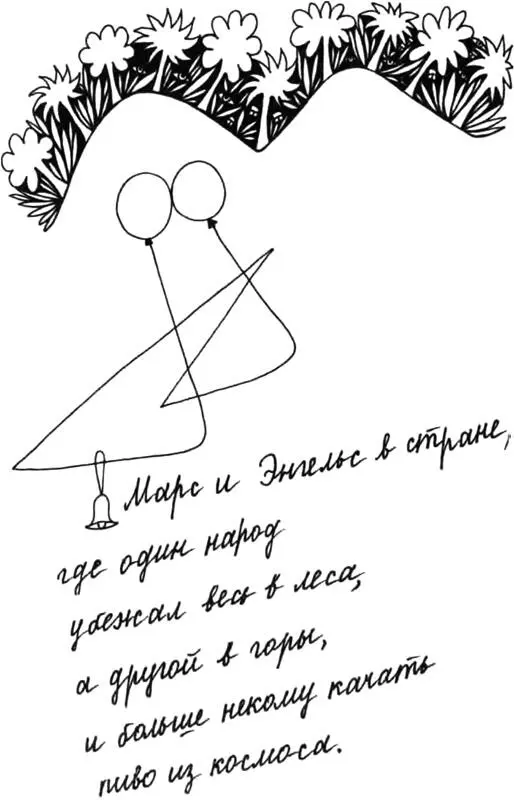 Марс и Энгельс в стране,
где один народ
убежал весь в леса,
а другой в горы,
и больше некому качать
пиво из космоса.